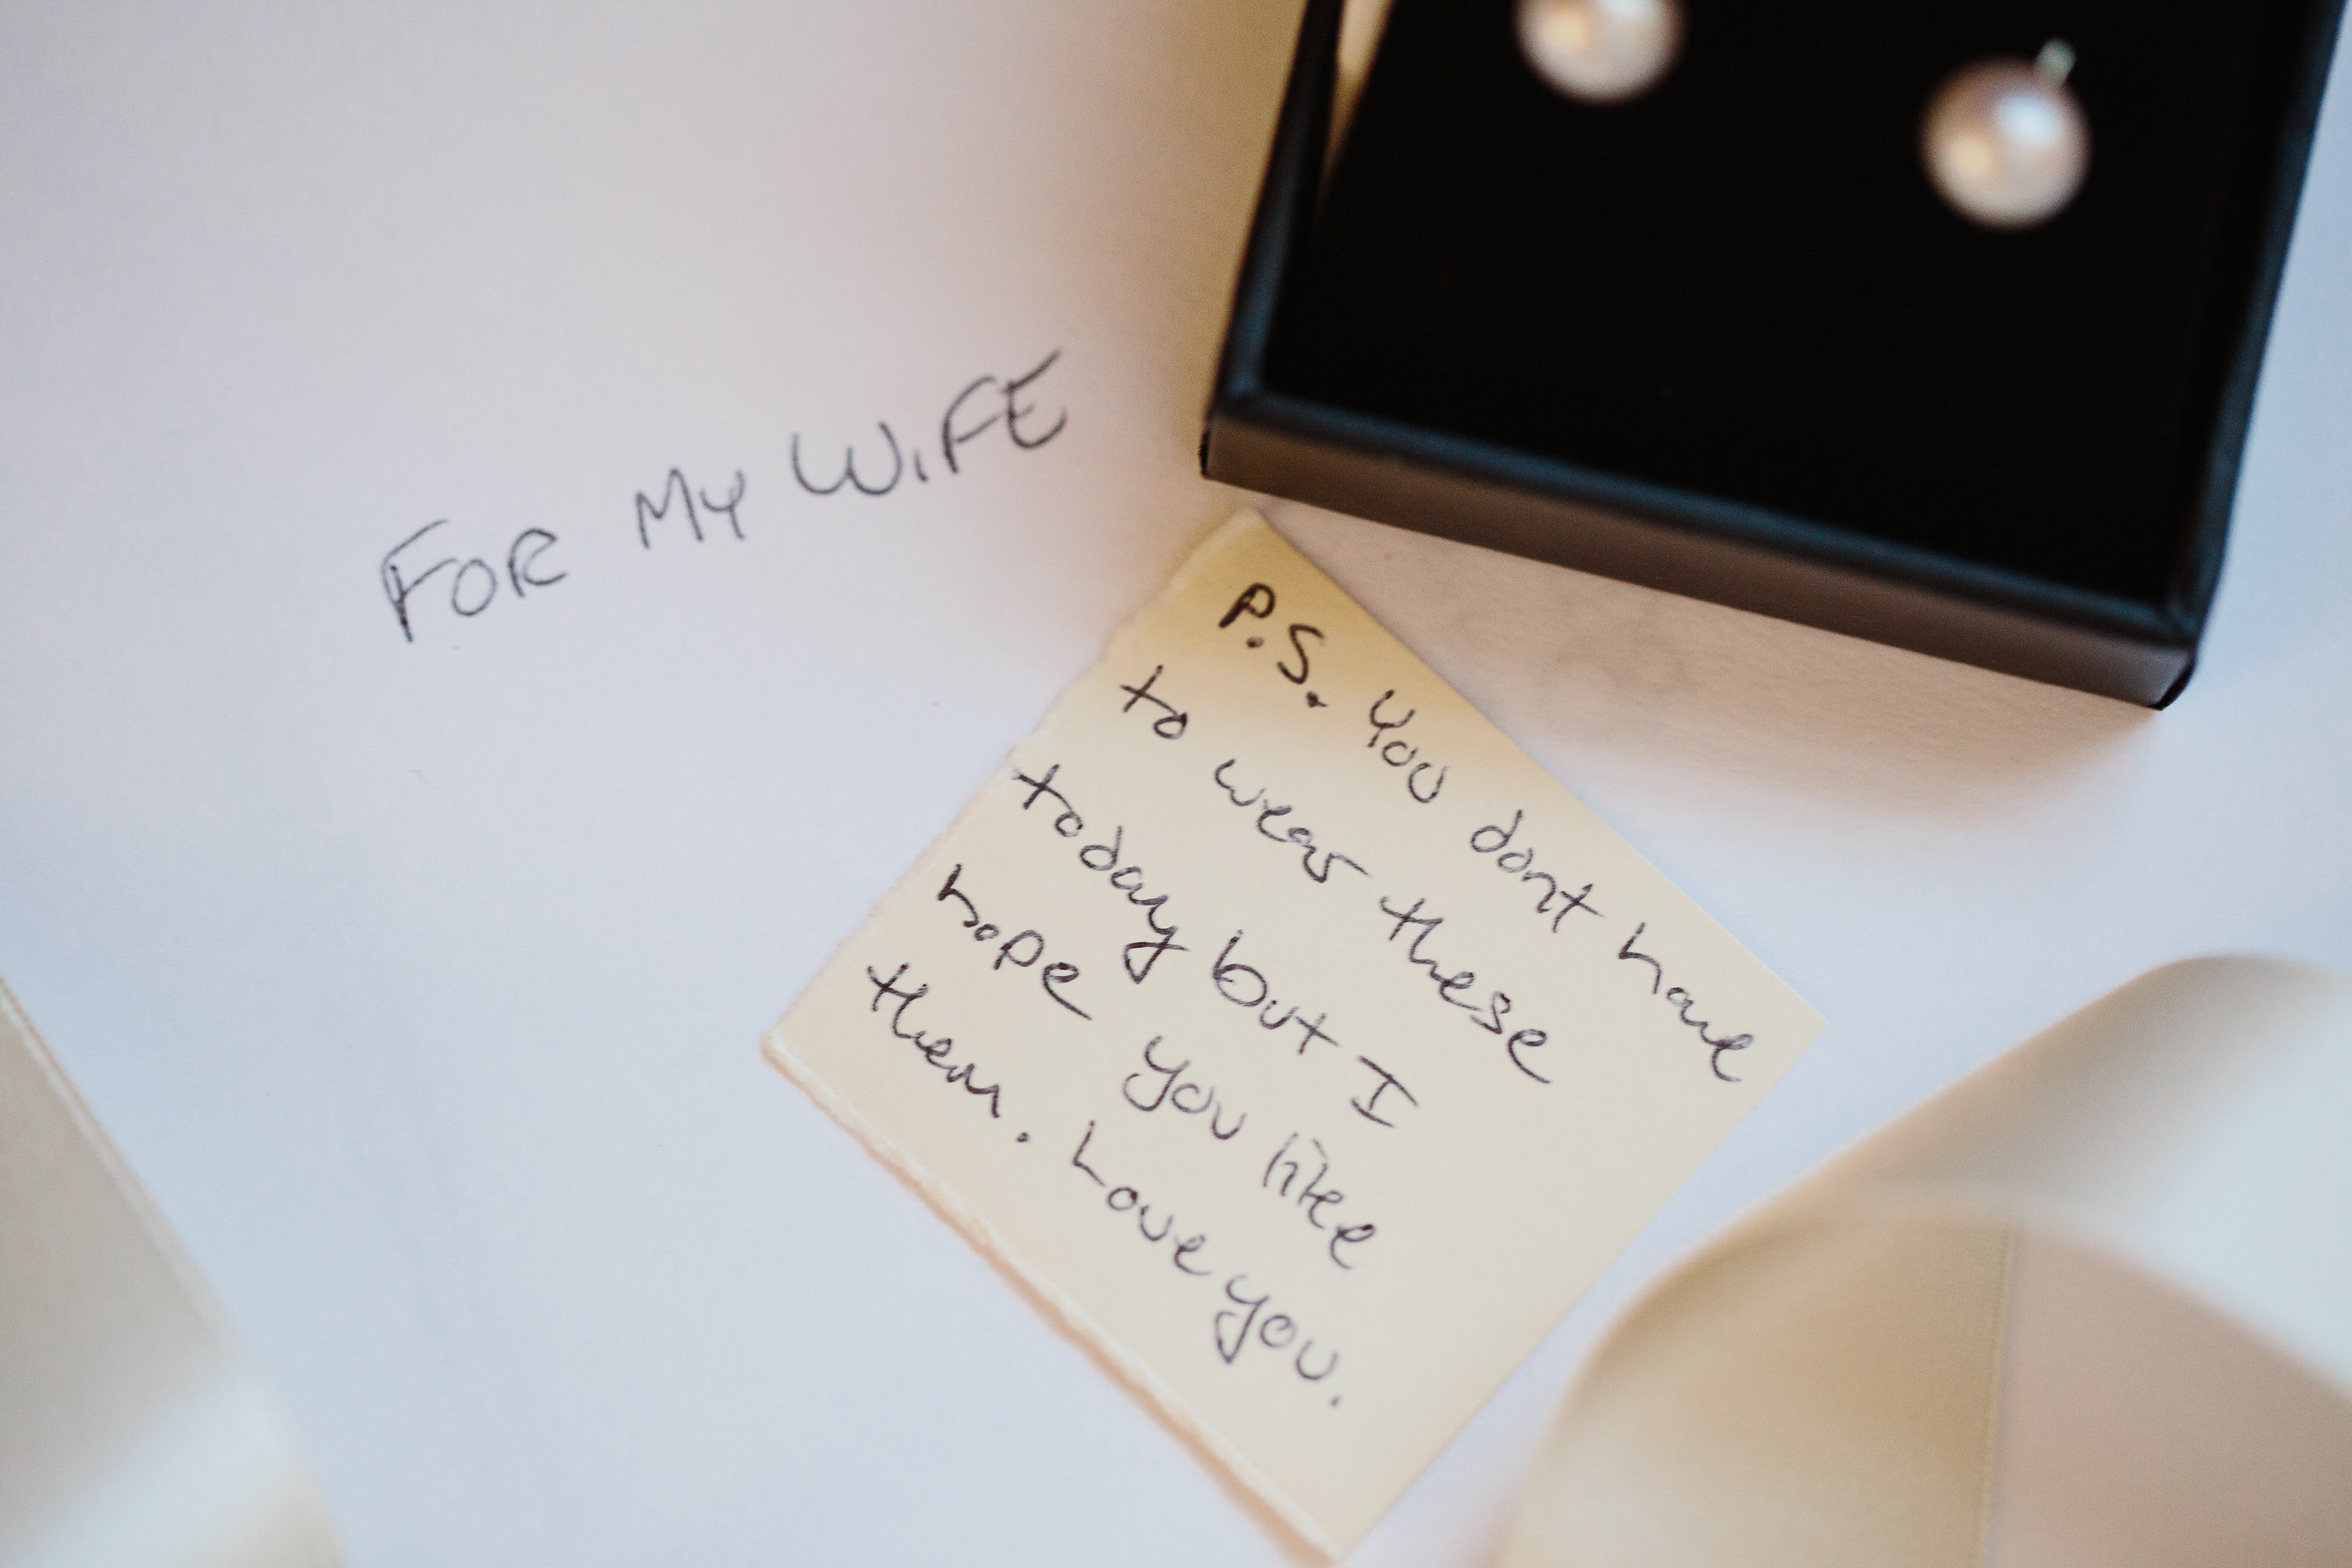 FOR MY WIFE
P.S. You dont have
to wear these
today but I
hope you like
them. Love you.